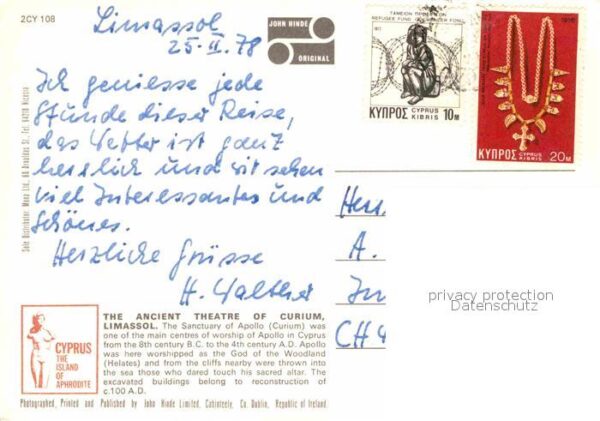 2CY 108
Limassol
25.II.78
JOHN HINDE
ORIGINAL
Ich geniesse jede
Stunde dieser Reise,
das Wetter ist ganz
herrlich und wir sehen
viel Interessantes und
Schönes.
Herzliche Grüsse
H. Walther
1977
REFUGEE FUND
ΚΥΠΡΟΣ CYPRUS KIBRIS 10M
1976
ΚΥΠΡΟΣ CYPRUS KIBRIS 20M
Sole Distributor:
Nicosia
Herr
A.
CH 4
privacy protection
Datenschutz
CYPRUS
THE
ISLAND
OF
APHRODITE
THE ANCIENT THEATRE OF CURIUM,
LIMASSOL. The Sanctuary of Apollo (Curium) was
one of the main centres of worship of Apollo in Cyprus
from the 8th century B.C. to the 4th century A.D. Apollo
was here worshipped as the God of the Woodland
(Helates) and from the cliffs nearby were thrown into
the sea those who dared touch his sacred altar. The
excavated buildings belong to reconstruction of
c.100 A.D.
Photographed, Printed and Published by John Hinde Limited, Cabinteely, Co. Dublin, Republic of Ireland